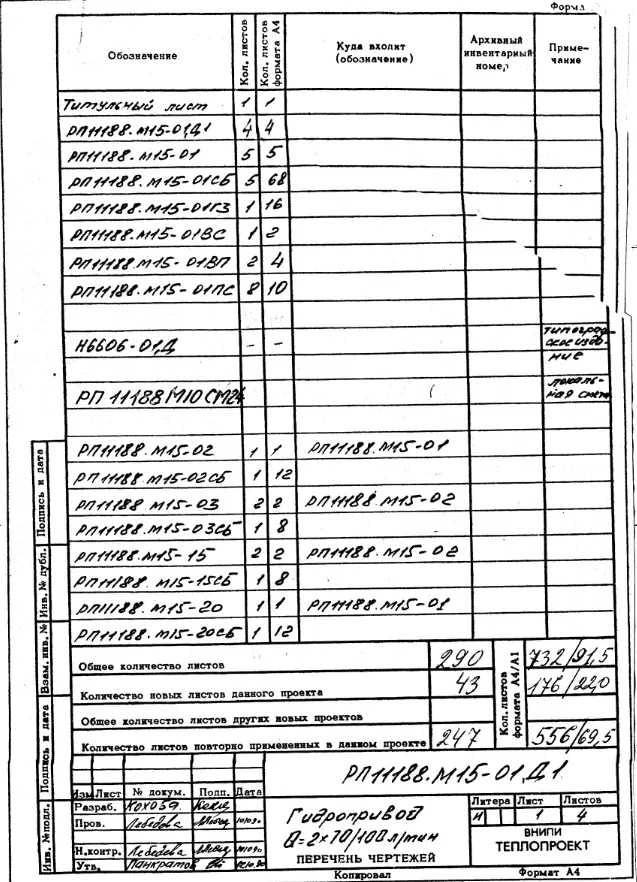 Форма
Обозначение Кол. листов Кол. листов формата А4 Куда входит (обозначение) Архивный инвентарный номер Приме-чание
Титульный лист 1 1
РП11188.М15-01Д1 4 4
РП11188.М15-01 5 5
РП11188.М15-01СБ 5 68
РП11188.М15-01ГЗ 1 16
РП11188.М15-01ВС 1 2
РП11188.М15-01ВП 2 4
РП11188.М15-01ПС 8 10
Н6606-01Д - - типограф-ское изда-ние
РП 11188М10СМ24 локаль-ная смета
РП11188.М15-02 1 1 РП11188.М15-01
РП11188.М15-02СБ 1 12
РП11188 М15-03 2 2 РП11188.М15-02
РП11188.М15-03СБ 1 8
РП11188.М15-15 2 2 РП11188.М15-02
РП11188.М15-15СБ 1 8
РП11188.М15-20 1 1 РП11188.М15-01
РП11188.М15-20СБ 1 12
Общее количество листов 290 732/91,5
Количество новых листов данного проекта 43 176/220
Общее количество листов других новых проектов
Количество листов повторно примененных в данном проекте 247 556/69,5
Кол. листов формата А4/А1
Инв. № подл. Подпись и дата Взам. инв. № Инв. № дубл. Подпись и дата
РП11188.М15-01Д1
Изм Лист № докум. Подп. Дата
Разраб.
Пров. Лебедева
Н.контр. Лебедева
Утв. Панкратов
Гидропривод
Q=2х70/100л/мин
ПЕРЕЧЕНЬ ЧЕРТЕЖЕЙ
Литера Лист Листов
И 1 4
ВНИПИ
ТЕПЛОПРОЕКТ
Копировал Формат А4